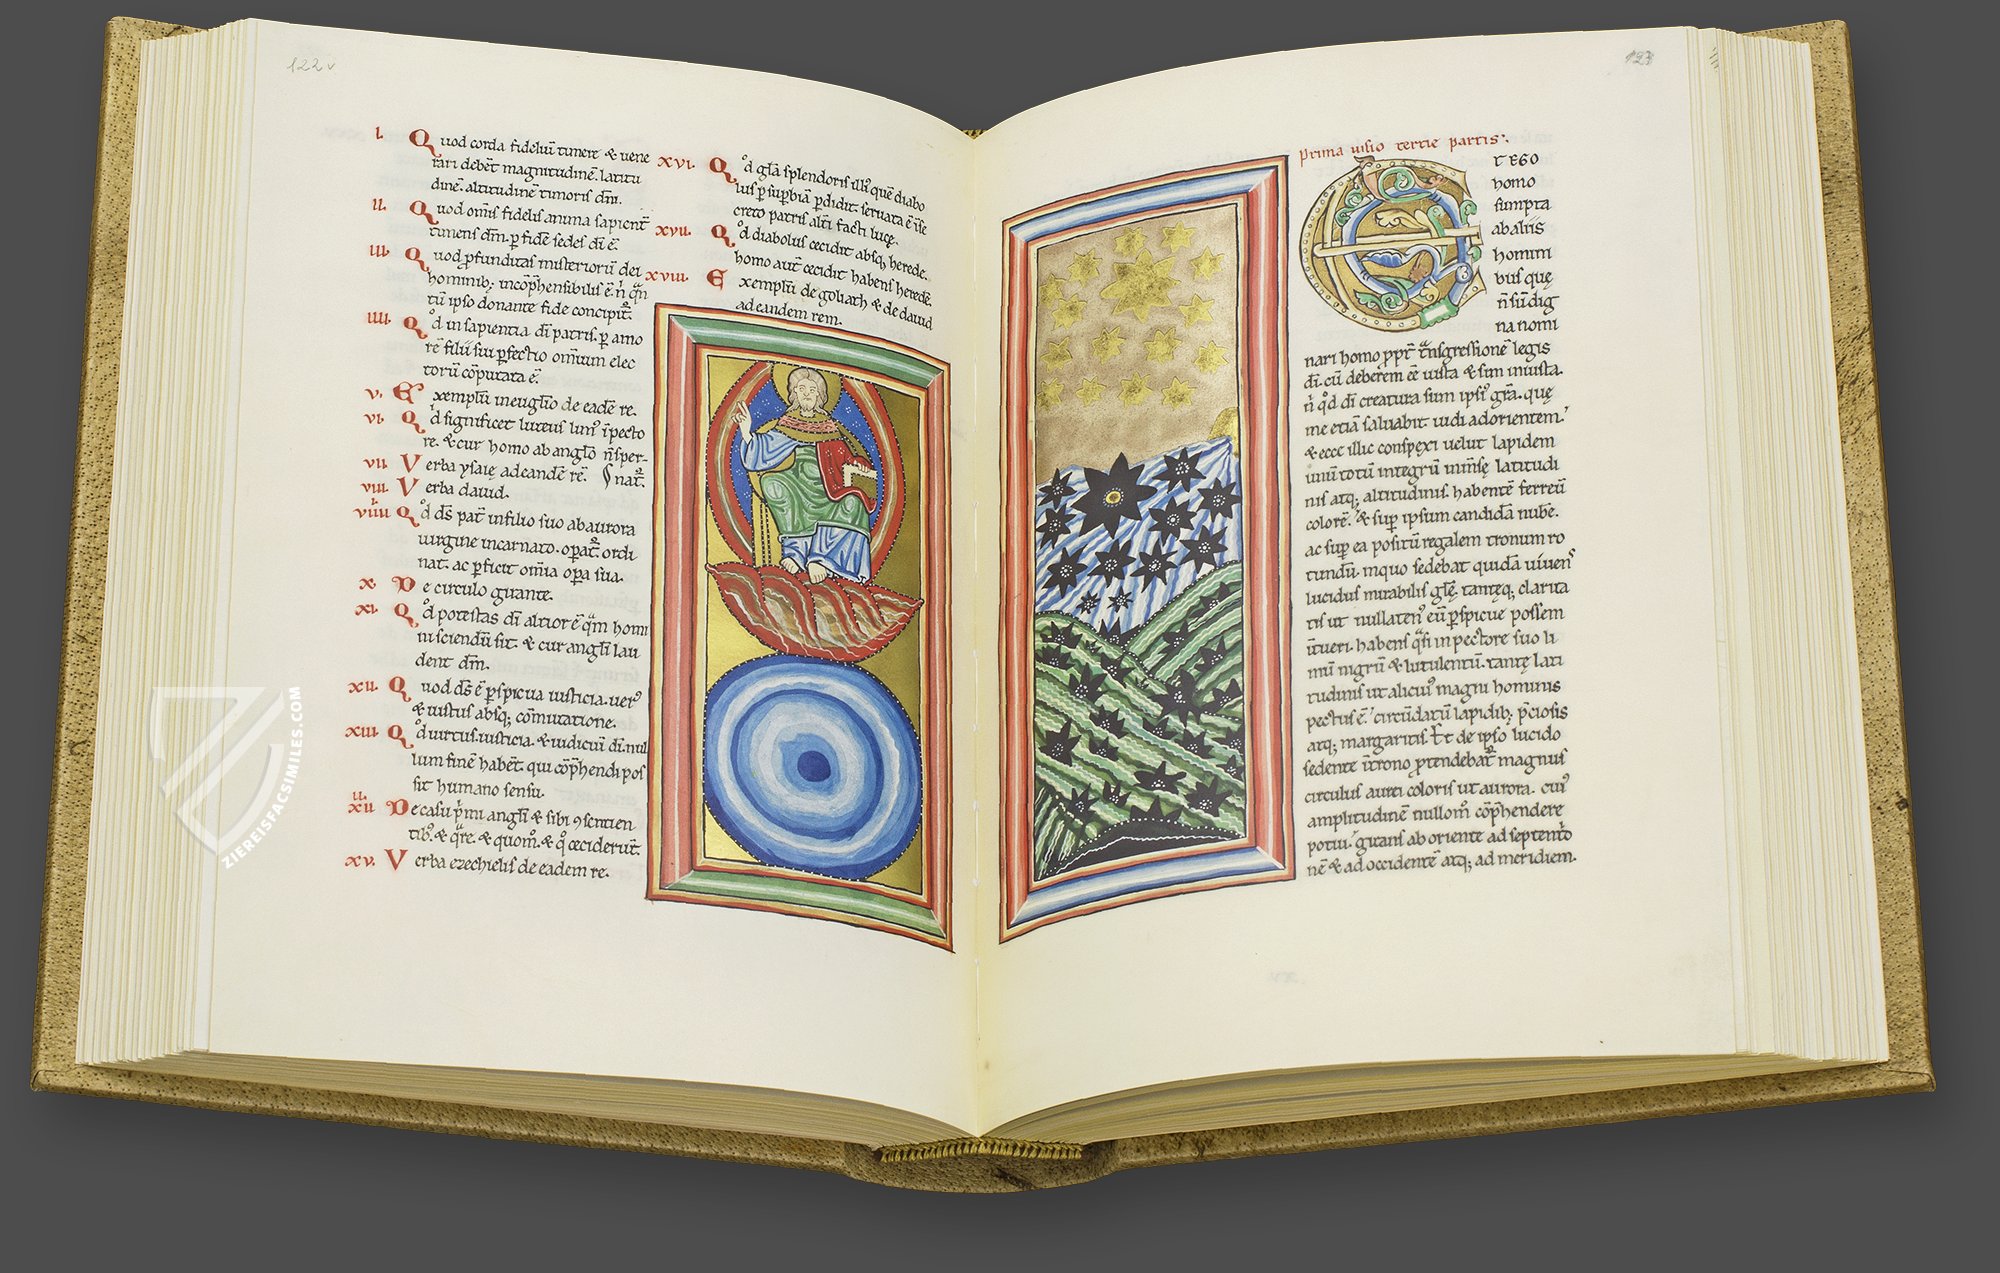 122v
I. Quod corda fideliũ timere & uene
rari debẽt magnitudinẽ. latitu
dinẽ. altitudinẽ timoris dñi.
II. Quod omĩs fidelis anima sapient̃
timens dñm. p fidẽ sedes dĩ ẽ.
III. Quod pfunditas misterioru᷑ dei
hominib; incõp̃hensibilis ẽ. ñ qñ
tũ ipso donante fide concipit᷑.
IIII. Qd in sapientia dĩ patris. p amo
rẽ filii sui pfectio omĩum elec
torũ cõputata ẽ.
V. Exemplũ in euuglĩo de eadẽ re.
VI. Qd significet luteus lim᷒ ĩ pecto
re. & cur homo ab anglõ ñ sper-
nat᷑.
VII. Verba ysaię ad eandẽ rẽ.
VIII. Verba dauid.
VIIII. Qd dš pat̃ in filio suo ab aurora
uirgine incarnato. opat᷑. ordi
nat. ac pficit om̃ia opa sua.
X. De circulo girante.
XI. Qd potestas dĩ altior ẽ quã homi
ni sciendũ sit. & cur anglĩ lau
dent dñm.
XII. Quod dš ẽ pspicua iusticia. uer᷒
& iustus absq; cõmutatione.
XIII. Qd uirtus. iusticia. & iudiciũ dĩ. nul
lum finẽ habẽt qui cõp̃hendi pos
sit humano sensu.
XIIII. De casu p̃mi anglĩ & sibi ꝯsentien
tib᷒. & q̃re. & quom̊. & q̊ ceciderũt.
XV. Verba ezechielis de eadem re.
XVI. Qd gl̃a splendoris illi᷒ quẽ diabo
lus p supbiã pdidit seruata ẽ in se
creto patris alt̃i facti lucę.
XVII. Qd diabolus cecidit absq; herede.
homo aut̃ cecidit habens heredẽ.
XVIII. Exemplũ de goliath & de dauid
ad eandem rem.
123
Prima uisio tercie partis:.
ET EGO
homo
sumpta
ab aliis
homini
bus quę
ñ sũ dig
na nomi
nari homo ppt̃ t̃nsgressionẽ legis
dĩ. cũ deberem eẽ iusta & sim iniusta.
ñ qd dĩ creatura sum ipsi᷒ gr̃a. quę
me etiã saluabit uidi ad orientem.
& ecce illic conspexi uelut lapidem
unũ totũ integrũ inm̃sę latitudi
nis atq; altitudinis habentẽ ferreũ
colorẽ. & sup ipsum candidã nubẽ.
ac sup ea positũ regalem tronum ro
tundũ. in quo sedebat quidã uiuens
lucidus mirabilis glę̃. tantęq; clarita
tis ut nullaten᷒ eũ pspicue possem
ĩtueri. habens q̃si in pectore suo li
mũ nigrũ & lutulentũ. tantę lati
tudinis ut alicui᷒ magni hominis
pectus ẽ. circũdatũ lapidib; p̃ciosis
atq; margaritis. Et de ipso lucido
sedente ĩ trono ptendebat᷑ magnus
circulus aurei coloris ut aurora. cui᷒
amplitudinẽ nullom̊ cõp̃hendere
potui. girans ab oriente ad septentrio
nẽ & ad occidentẽ atq; ad meridiem.
ZIEREISFACSIMILES.COM